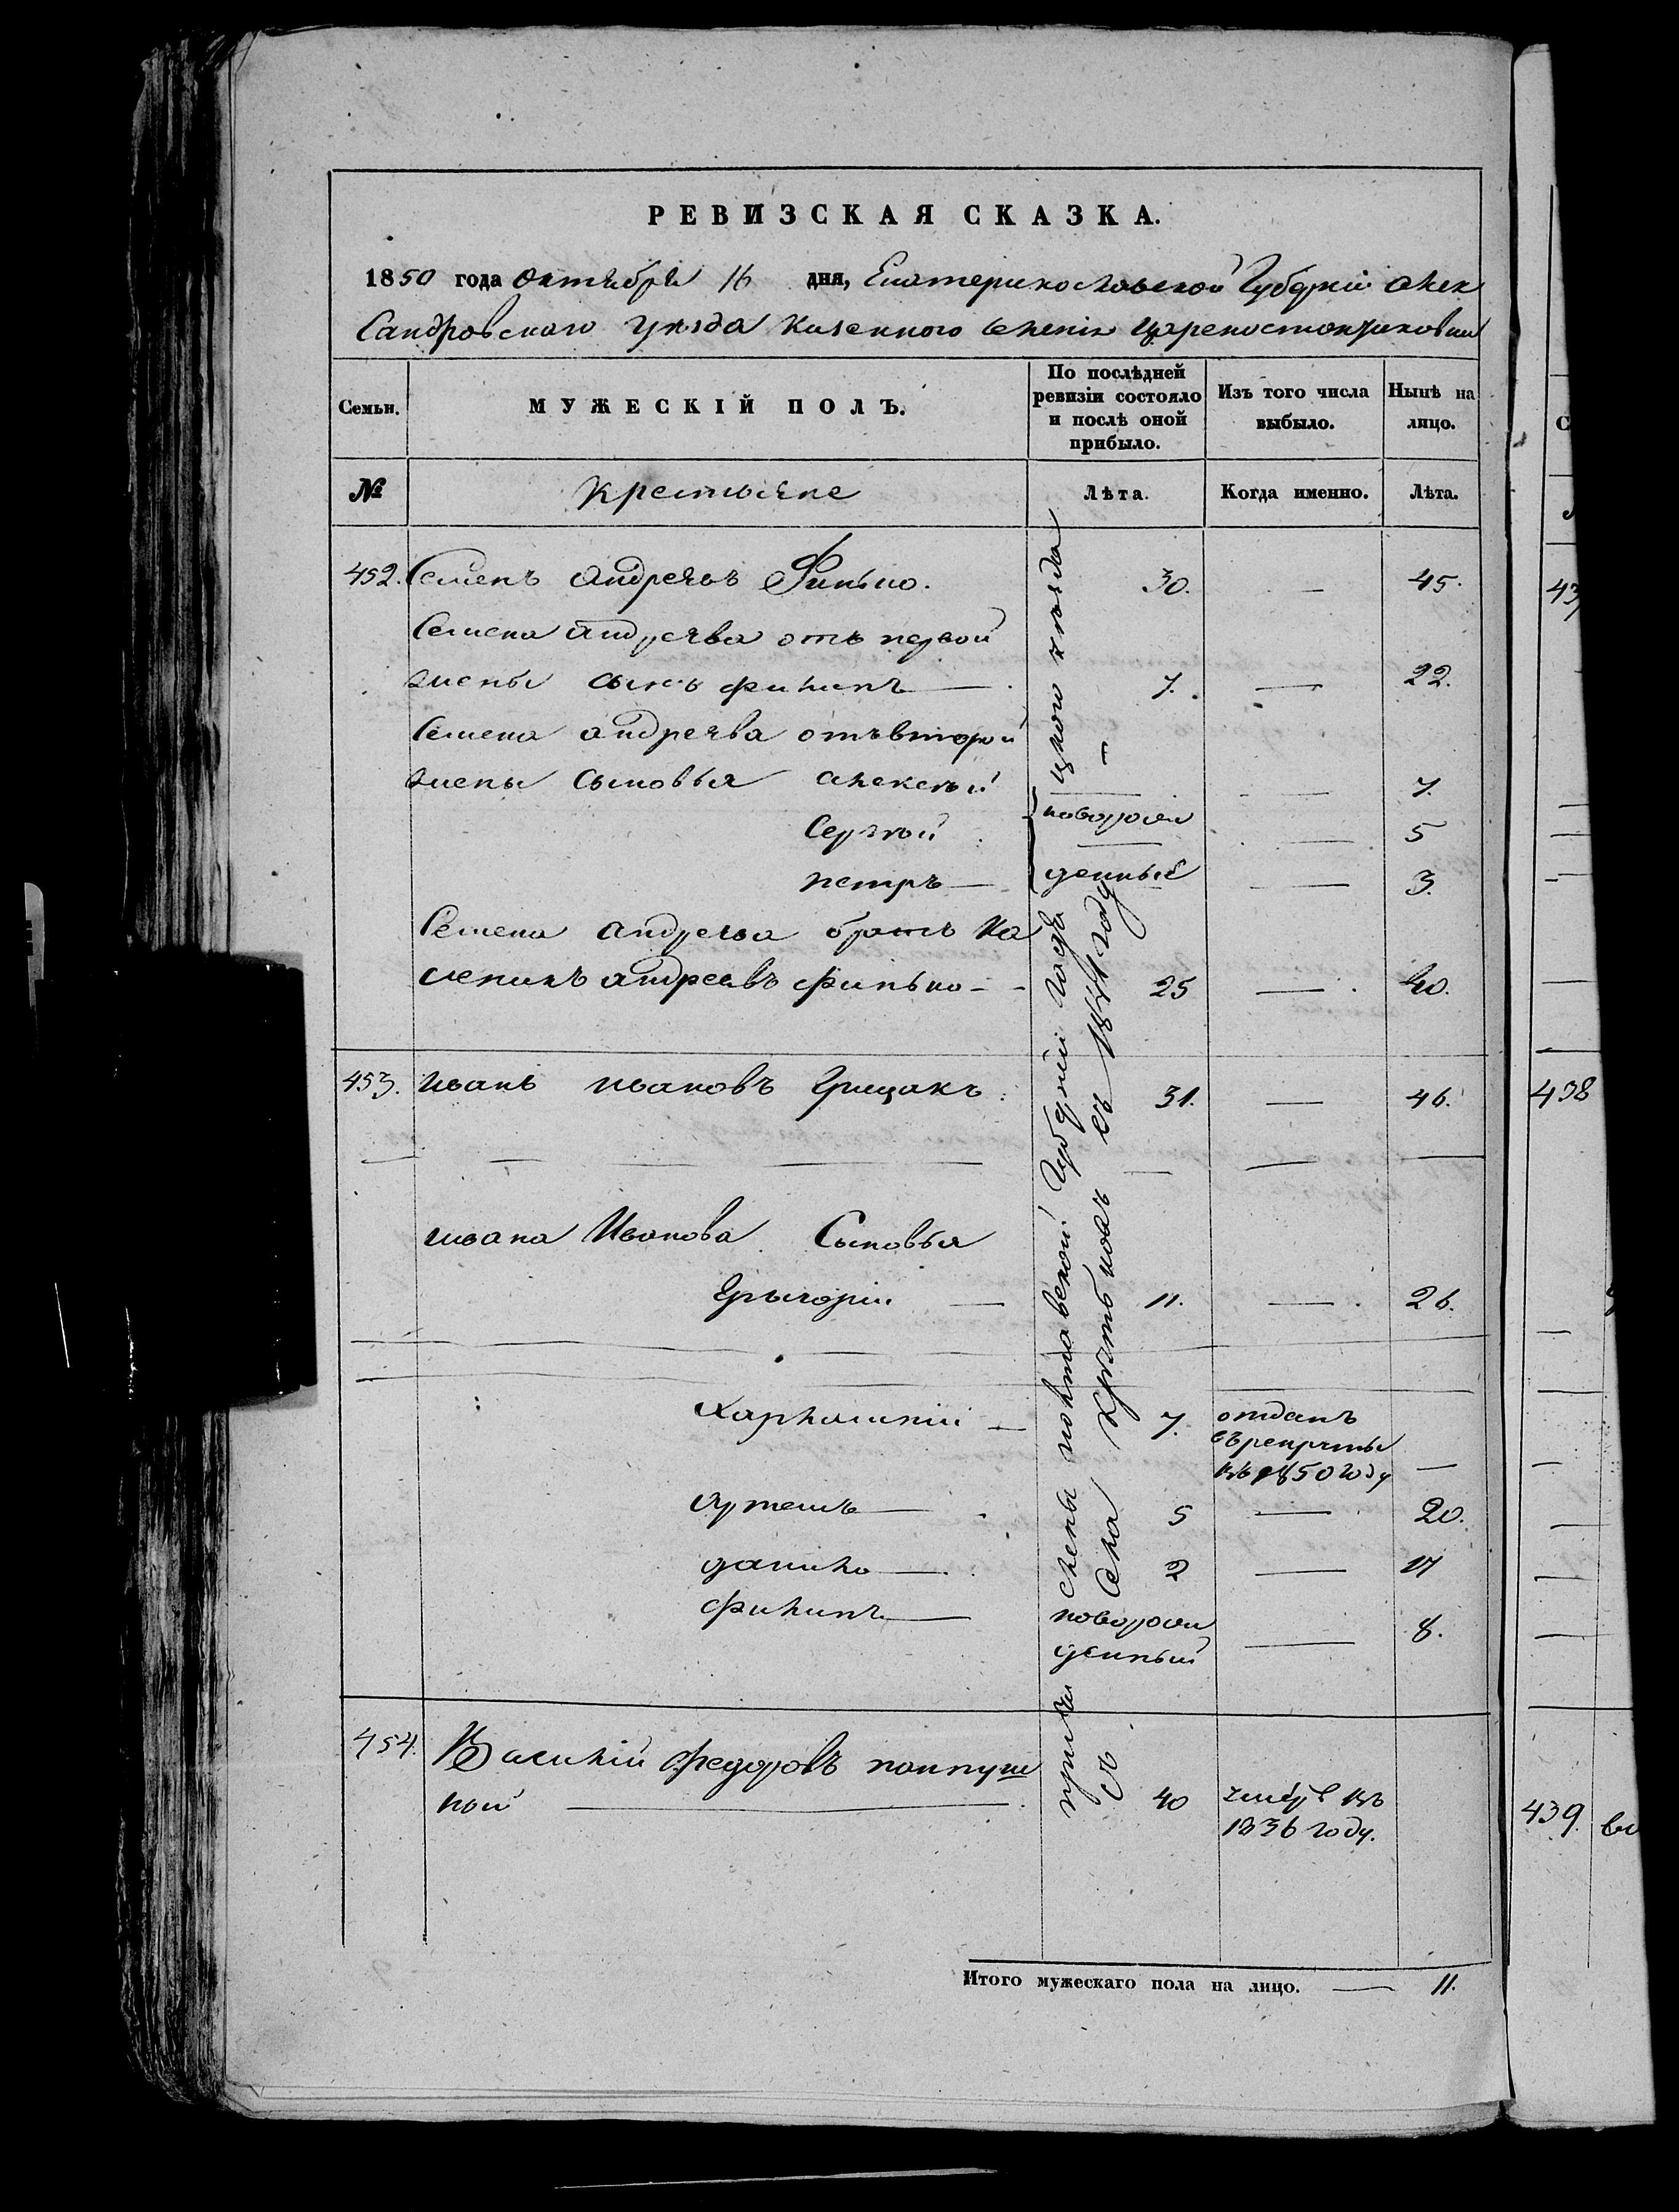 РЕВИЗСКАЯ СКАЗКА.
1850 года Октября 16 дня, Екатеринославской Губерніи Алек
Сандровскаго уезда казенного Селенія Цареконстантиновки
Семьи.
МУЖЕСКІЙ ПОЛЪ.
По послѣдней
ревизіи состояло
и послѣ оной
прибыло.
Изъ того числа
выбыло.
Нынѣ на
лицо.
№
Крестьяне
Лѣта.
Когда именно.
Лѣта.
452. Семенъ Андреевъ Финько. 30. — 45.
Семена Андреева отъ первой
жены сынъ Филипъ — 7. — 22.
Семена Андреева отъ второй
жены Сыновья Алексей — 7.
новорож
Сергей — 5
денные
петръ — — 3.
Семена Андреева братъ Ка
леникъ Андреевъ Финько - 25 — 40.
453. Иванъ Ивановъ Грицакъ. 31. — 46.
Ивана Иванова Сыновья
Грыгорій — 11. — 26.
Харлампій — 7. отданъ
въ рекруты
въ 1850 году —
Артемъ — 5 — 20.
данило — 2 — 17
Филипъ — новорож
денный — 8.
454. Василій Федоровъ
ной — 40 умеръ въ
1836 году.
полтавской Губерніи
уезда
Села
въ 1844 году
Итого мужескаго пола на лицо. — 11.
43
438
439. ва